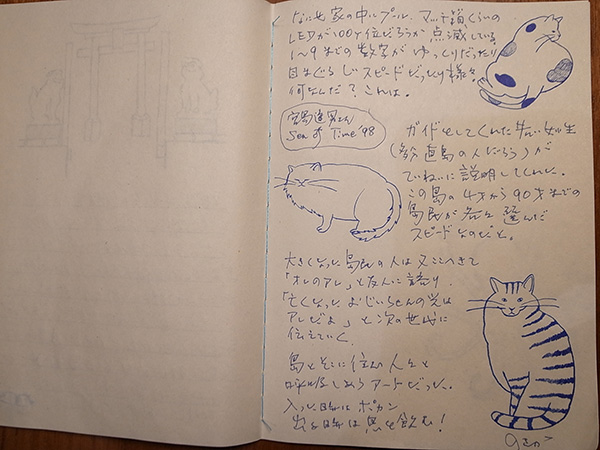 なにせ家の中にプール。マッチ箱くらいの
LEDが100ヶ位だろうか 点滅している。
1〜9までの数字が ゆっくりだったり
目まぐるしいスピードだったり様々。
何なんだ?これは。
宮島達男さん
Sea of Time '98
ガイドをしてくれた若い女性
(多分直島の人だろう)が
ていねいに説明してくれた。
この島の4才から90才までの
島民が各々選んだ
スピードなのだと。
大きくなった島民の人は又ここへきて
「オレのアレ」と友人に語り、
「亡くなったおじいちゃんの光は
アレだよ」と次の世代に
伝えていく。
島とそこに住む人々と
呼吸しあうアートだった。
入った時はポカン
出る時は息を飲む!